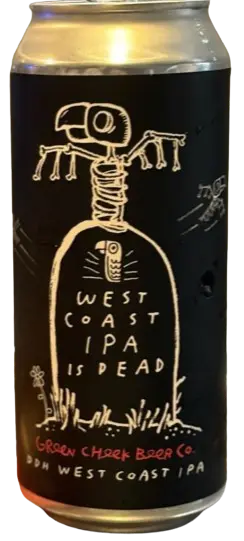 WEST
COAST
IPA
IS DEAD
GREEN CHEEK BEER CO.
DDH WEST COAST IPA